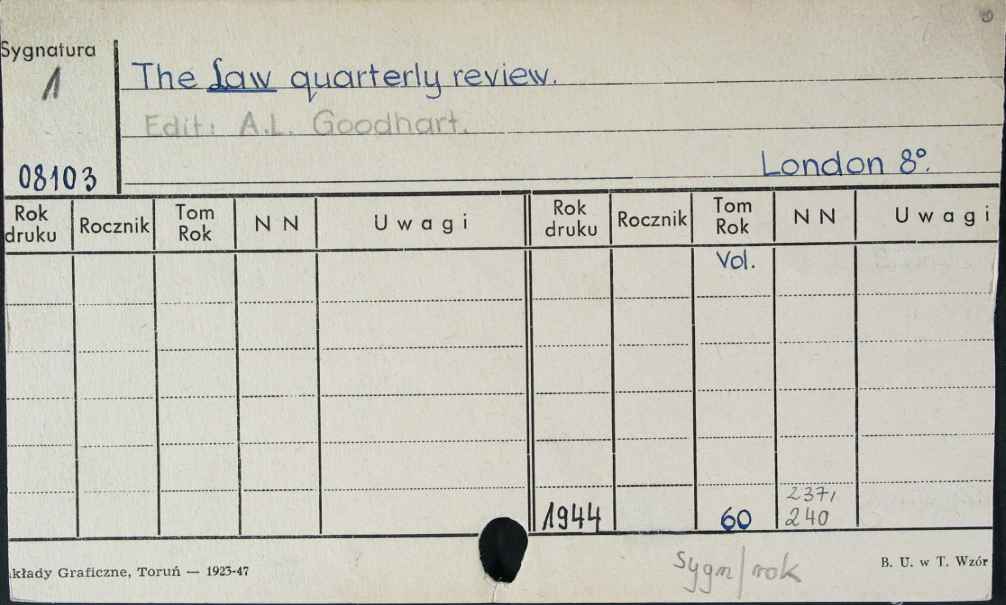 Sygnatura
1
The Law quarterly review.
Edit: A.L. Goodhart.
08103
London 8°.
Rok druku Rocznik Tom Rok N N Uwagi Rok druku Rocznik Tom Rok N N Uwagi
Vol.
237,
1944 60 240
kłady Graficzne, Toruń — 1923-47
Sygn/rok
B. U. w T. Wzór